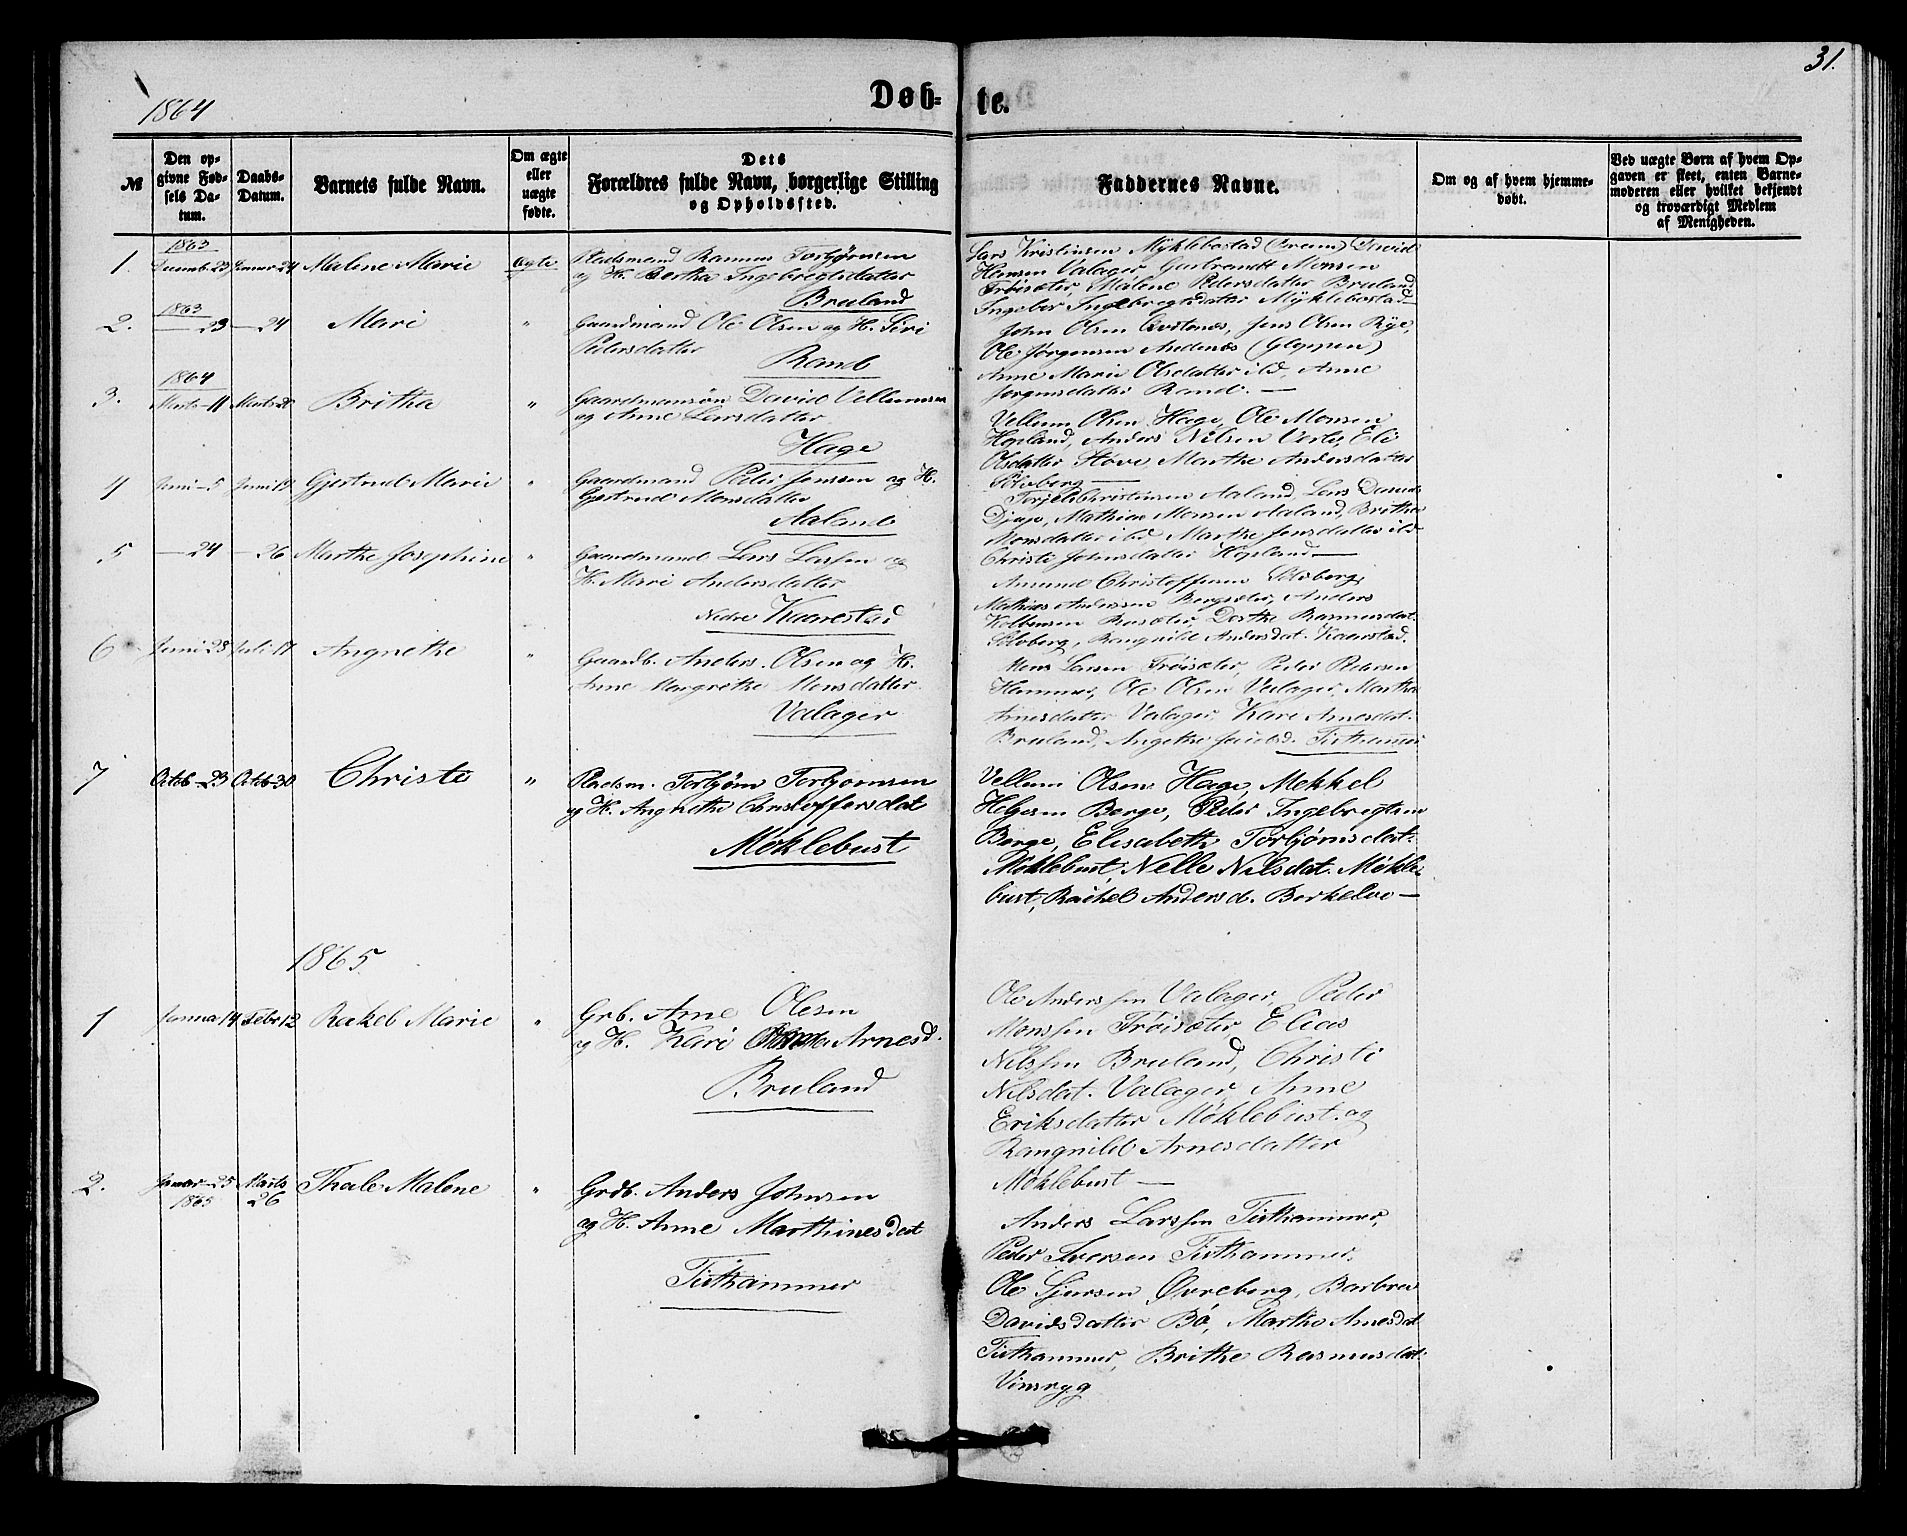 31.
1864
Døb- te.
№
Den opgivne Fødsels Datum.
Daabs-Datum.
Barnets fulde Navn.
Om ægte eller uægte fødte.
Dets Forældres fulde Navn, borgerlige Stilling og Opholdssted.
Faddernes Navne.
Om og af hvem hjemmedøbt.
Ved uægte Børn af hvem Opgaven er skeet, enten Barnemoderen eller hvilket bekjendt og troværdigt Medlem af Menigheden.
1. 1863 Decemb. 23 Januar 24 Malene Marie ægte
Pladsmand Rasmus Torbjørnsen
og H. Bertha Ingebregtsdatter
Bruland
Lars Kristensen Myklebostad (Breum) David
Hansen Valager, Gerbrandt Monsen
Trøisæter, Malene Pedersdatter Bruland
Ingebor Ingebregtsdatter Myklebostad
2. 1863 — 23 — 24 Mari "
Gaardmand Ole Olsen og H. Siri
Pedersdatter
Rand
John Olsen Evstenæs, Jens Olsen Rye,
Ole Jørgensen Andenæs (Gloppen)
Anne Marie Olsdatter ibd, Anne
Jørgensdatter Rand. —
3. 1864 Marts 11 Marts 20 Britha "
Gaardmansøn David Vellumsen
og Anne Larsdatter
Hage
Vellum Olsen Hage, Ole Monsen
Hopland, Anders Nilsen Verlo, Eli
Olsdatter Støve, Marthe Andersdatter
Solvberg —
4 Juni 5 Juni 19 Gjertrud Marie "
Gaardmand Peder Jensen og H.
Gjertrud Monsdatter
Aaland
Torjels Christensen Aaland, Lars Davids
Djupo, Mathias Monsen Aaland, Brithe
Monsdatter ibd Marthe Jensdatter ibd
Christi Johnsdatter Hopland —
5 — 24 — 26 Marthe Josephine "
Gaardmand Lars Larsen og
H. Mari Andersdatter
Nedre Kaarestad
Amund Christoffersen Solvberg,
Mathias Anderssen Bergsæter, Anders
Kolbensen Russæter, Dorthe Rasmusdat.
Solvberg, Rangnild Andersdat. Kaarstad.
6 Juni 28 Juli 17 Angnethe "
Gaardb. Anders Olsen og H.
Anne Margrethe Monsdatter
Valager
Mons Larsen Trøisæter, Peder Pedersen
Hammer, Ole Olsen Valager, Martha
Arnesdatter Valager, Kari Arnesdat.
Bruland, Angethe Jacobsd. Tisthammer
7 Octob 23 Octob 30 Christi "
Pladsm. Torbjørn Torbjørnsen
og H. Angnethe Christoffersdat
Møklebust
Vellum Olsen Hage, Mekkel
Helgesen Berge, Peder Ingebregtsen
Berge, Elisabeth Torbjørnsdat.
Møklebust, Nelle Nilsdat. Møkle-
bust, Rachel Andersd. Berkelvo —
1865
1 Janua 14 Febr 12 Rakel Marie "
Grb. Arne Olesen
og H. Kari Arnesd.
Bruland
Ole Anderssen Valager, Peder
Monssen Trøisæter, Elias
Nilssen Bruland, Christi
Nilsdat. Valager, Anne
Eriksdatter Møklebust. og
Rangnild Arnesdatter
Møklebust —
2. Januar 25 1865 Marts 26 Thale Malene "
Grdb. Anders Johnsen
og H. Anne Marthinesdat
Tisthammer
Anders Larssen Tisthammer,
Peder Iversen Tisthammer,
Ole Sjursen Øvreberg, Barbra
Davidsdatter Bø, Marthe Arnesdat
Tisthammer, Brithe Rasmusdat.
Vinsryg